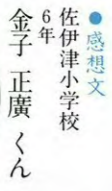 ●感想文
佐伊津小学校
6年
金子 正廣 くん